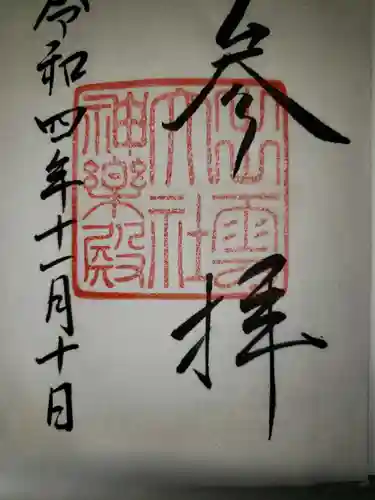 参拝
出雲
大社
神楽殿
令和四年十一月十日